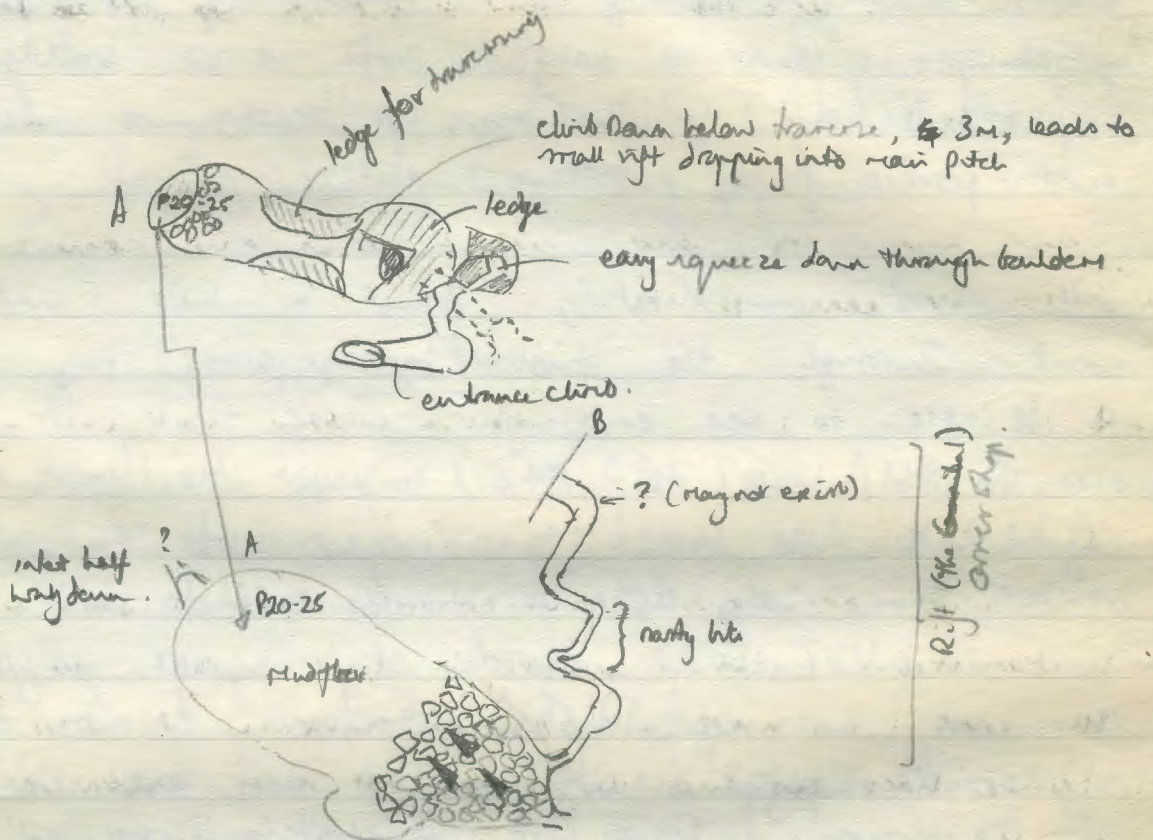 ledge for traversing
climb Down below traverse, 3m, leads to
small rift dropping into main pitch
A
P20-25
ledge
easy squeeze down through boulders.
entrance climb.
B
? (may not exist)
Rift (the
inlet half
way down.
?
A
P20-25
nasty bits
Mudfloor.